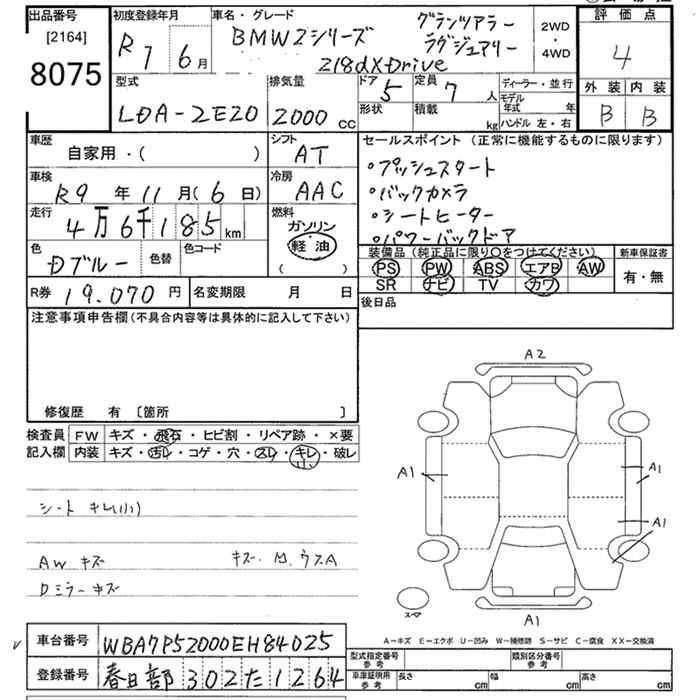 出品番号 [2164] 8075
初度登録年月 R7 6月
車名・グレード BMW2シリーズ グランツアラー ラグジュアリー
218dXDrive
2WD・4WD
評価点 4
外装 B 内装 B
型式 LDA-2E20
排気量 2000cc
ドア 5
形状
定員 7人
積載 kg
ディーラー・並行
モデル年式 年
ハンドル 左・右
車歴 自家用・( )
シフト AT
車検 R9年11月(6日)
冷房 AAC
走行 4万6千185km
燃料 ガソリン 軽油 ( )
色 Dブルー 色替 色コード
R券 19.070円
名変期限 月 日
セールスポイント(正常に機能するものに限ります)
・プッシュスタート
・バックカメラ
・シートヒーター
・パワーバックドア
装備品(純正品に限り○をつけてください)
PS PW ABS エアB AW
SR ナビ TV カワ
新車保証書 有・無
後日品
注意事項申告欄(不具合内容等は具体的に記入して下さい)
修復歴 有 〔箇所 〕
検査員記入欄
FW キズ・飛石・ヒビ割・リペア跡・×要
内装 キズ・汚レ・コゲ・穴・スレ・キレ・破レ
シート キレ(小)
AW キズ
Dミラーキズ
A2
A1
A1
A1
A1
A-キズ E-エクボ U-凹み W-補修跡 S-サビ C-腐食 XX-交換済
車台番号 WBA7P52000EH84025
登録番号 春日部302た1264
型式指定番号 参考
類別区分番号 参考
車庫証明用 参考 長さ cm 幅 cm 高さ cm